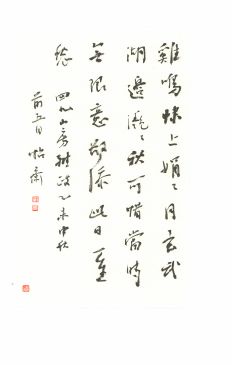 雞鳴埭上娟娟月玄武
湖邊瀝瀝秋可惜當時
無限意都添此日一重
愁 四松山房 乙未中秋
前五日